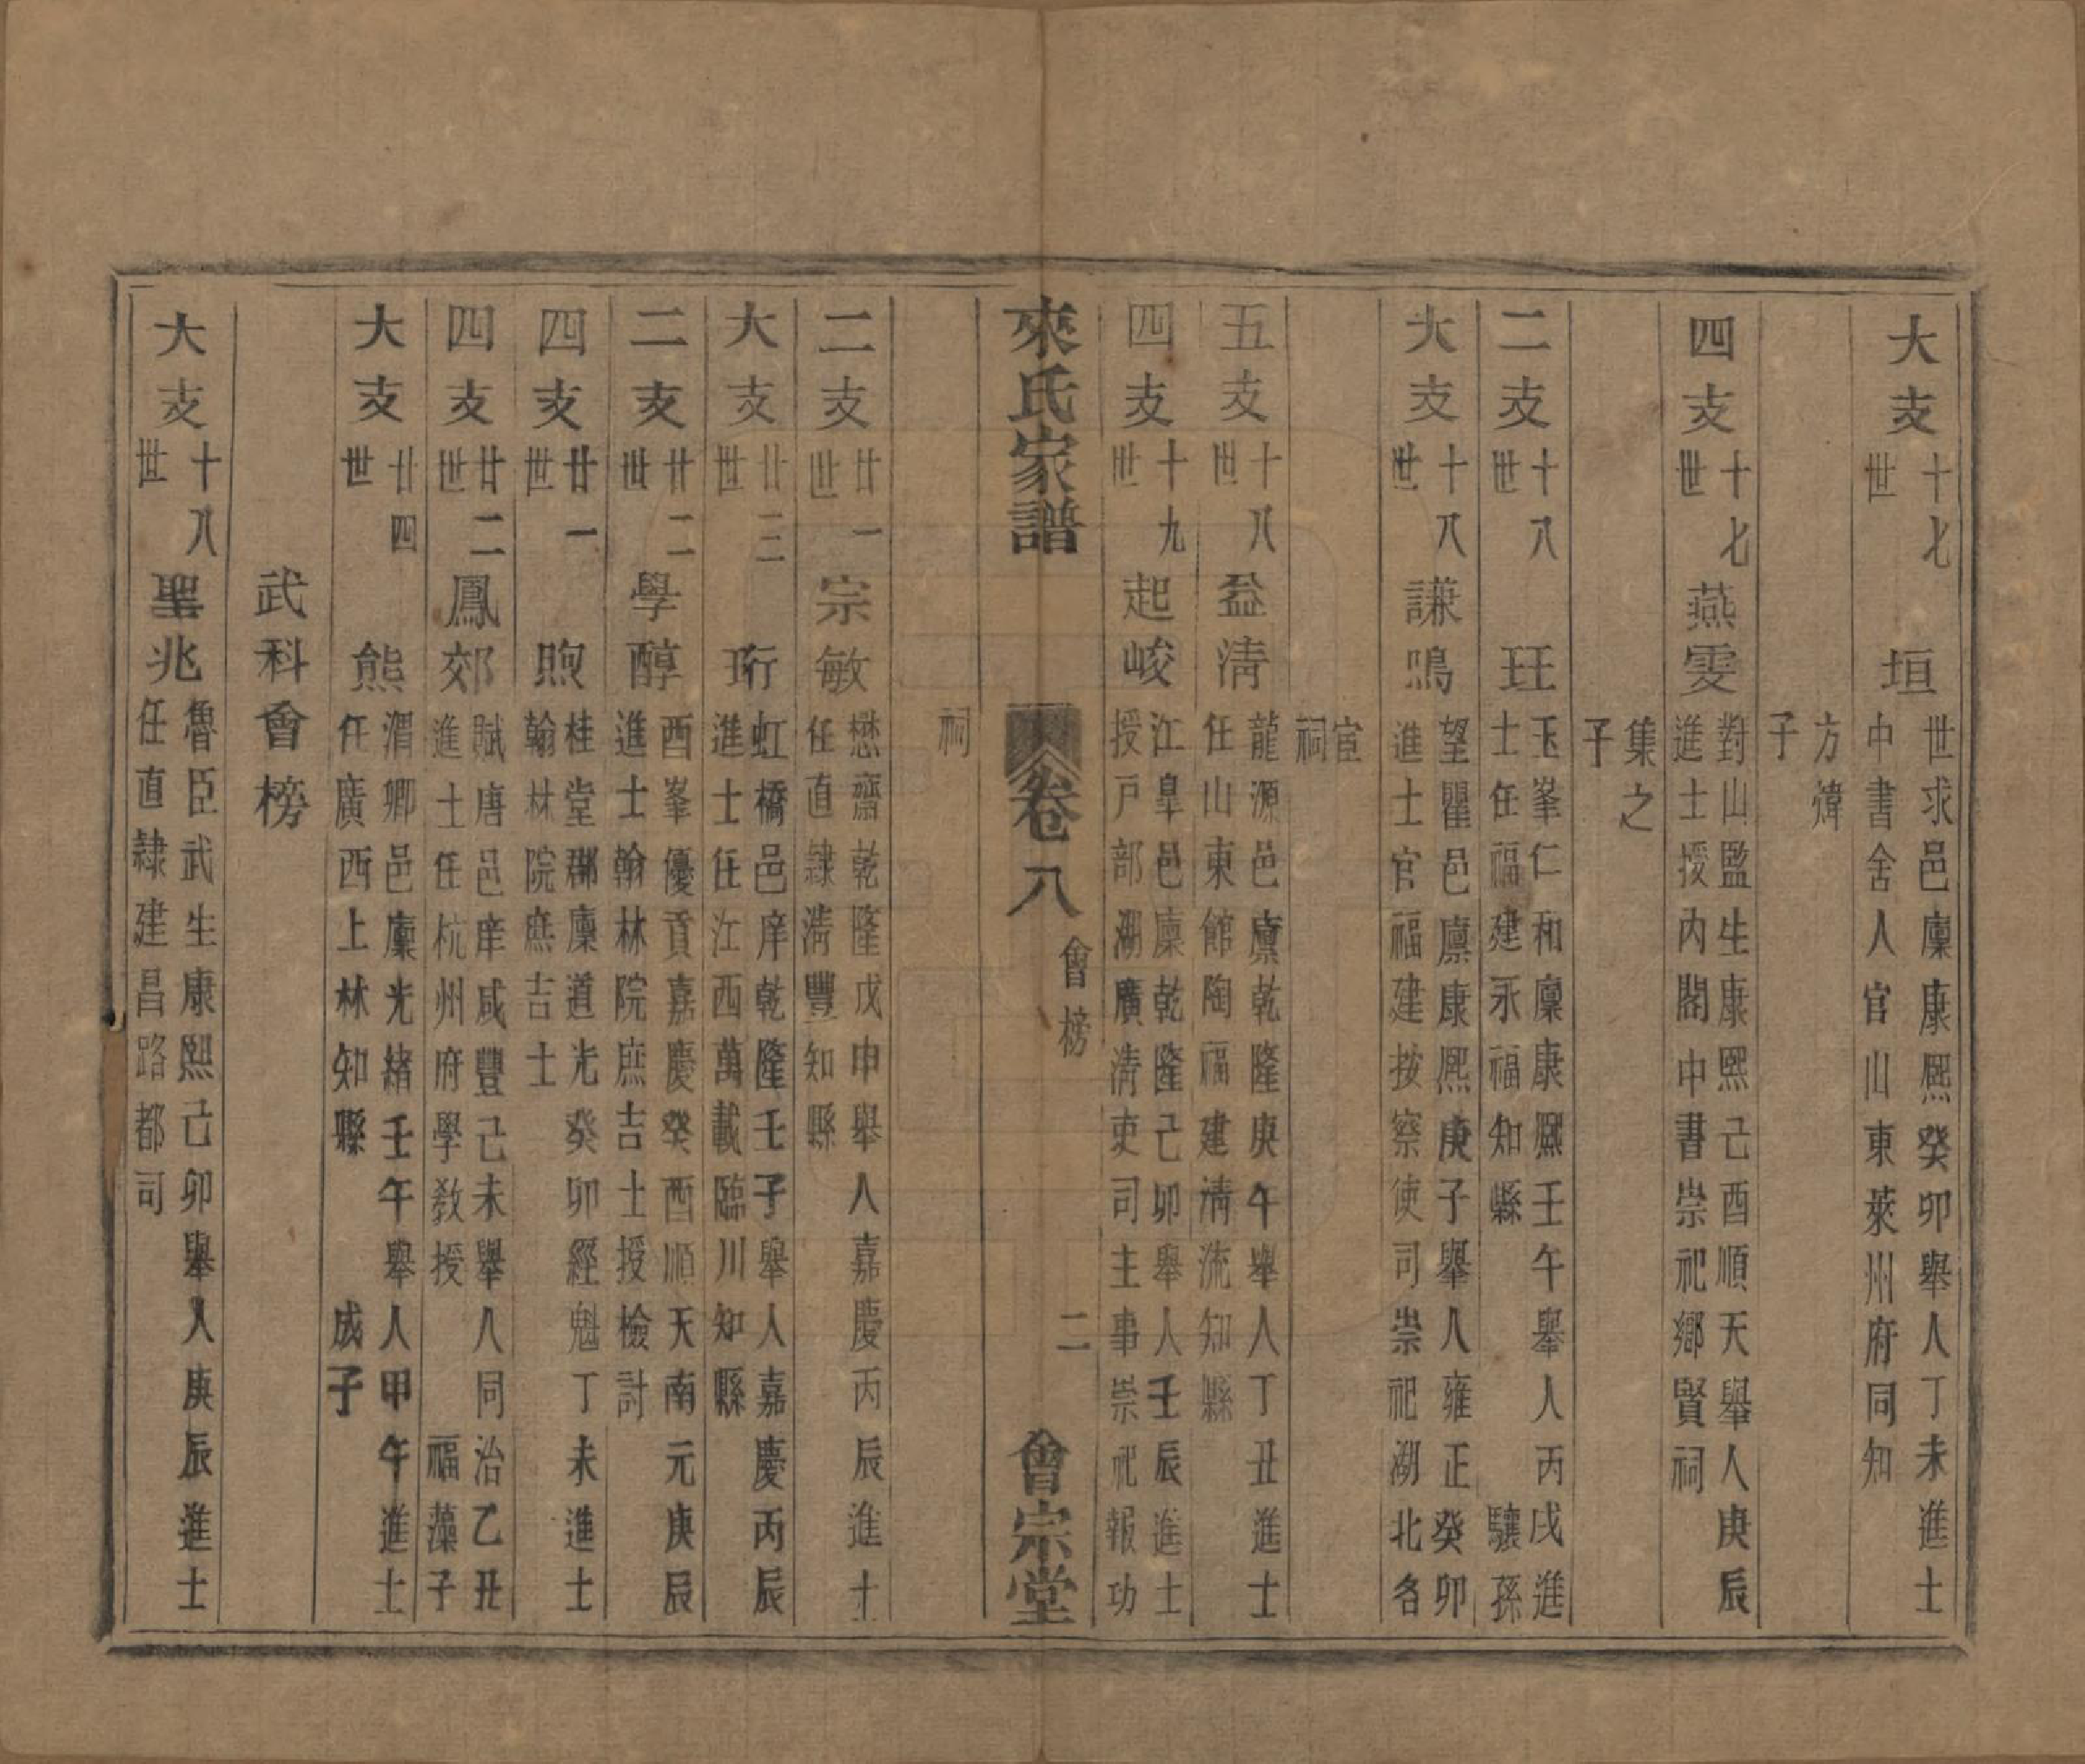 大支十七世　垣　世求邑廩康熙癸卯舉人丁未進士
中書舍人官山東萊州府同知
方煒
子
四支十七世　燕雯　對山監生康熙己酉順天舉人庚辰
進士授内閣中書崇祀鄉賢祠
集之
子
二支十八世　玨　玉峯仁和廩康熙壬午舉人丙戌進
士任福建永福知縣　驤孫
大支十八世　謙鳴　望瞿邑廩康熙庚子舉人雍正癸卯
進士官福建按察使司崇祀湖北名
宦
祠
五支十八世　益清　龍源邑廩乾隆庚午舉人丁丑進士
任山東館陶福建清流知縣
四支十九世　起峻　江臯邑廩乾隆己卯舉人壬辰進士
授戸部湖廣清吏司主事崇祀報功
來氏家譜　卷八　會榜　二　會宗堂
祠
二支廿一世　宗敏　懋齋乾隆戊申舉人嘉慶丙辰進士
任直隸清豐知縣
大支廿三世　珩　虹橋邑庠乾隆壬子舉人嘉慶丙辰
進士任江西萬載臨川知縣
二支廿二世　學醇　酉峯優貢嘉慶癸酉順天南元庚辰
進士翰林院庶吉士授檢討
四支廿一世　煦　桂堂郡廩道光癸卯經魁丁未進士
翰林院庶吉士
四支廿二世　鳳郊　賦唐邑庠咸豐己未舉人同治乙丑
進士任杭州府學教授　福藻子
大支廿四世　熊　渭卿邑廩光緒壬午舉人甲午進士
任廣西上林知縣　成子
武科會榜
大支十八世　聖兆　魯臣武生康熙己卯舉人庚辰進士
任直隸建昌路都司